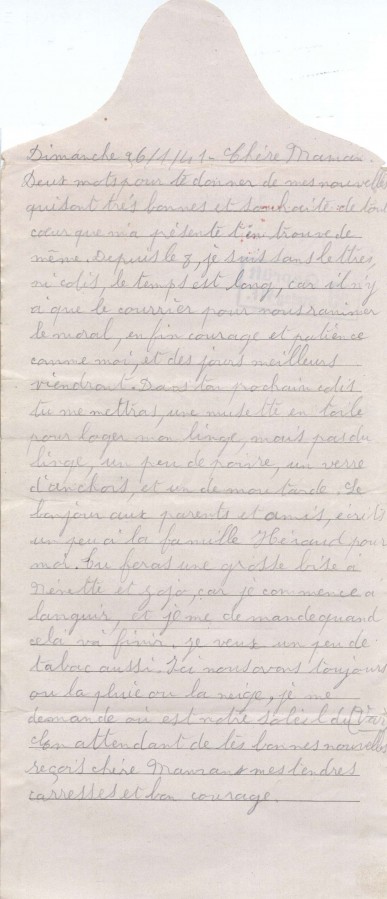 Dimanche 26/1/41 - Chère Maman.
Deux mots pour te donner de mes nouvelles
qui sont très bonnes et souhaite de tout
cœur que m'a présente t'en trouve de
même. Depuis le 7, je suis sans lettres,
ni colis, le temps est long, car il n'y
a que le courrier pour nous ranimer
le moral, enfin courage et patience
comme moi, et des jours meilleurs
viendront. Dans ton prochain colis
tu me mettras, une musette en toile
pour loger mon linge, mais pas du
linge, un peu de poivre, un verre
d'anchois, et un de moutarde. Le
bonjour aux parents et amis, écrit
un peu à la famille Héraud pour
moi. Tu feras une grosse bise à
Ninette et Zozo, car je commence a
languir, et je me demande quand
cela va finir. je veux un peu de
tabac aussi. Ici nous avons toujours
ou la pluie ou la neige, je me
demande où est notre soleil du (Var)
En attendant de tes bonnes nouvelles
reçois chère Maman mes tendres
carresses et bon courage.